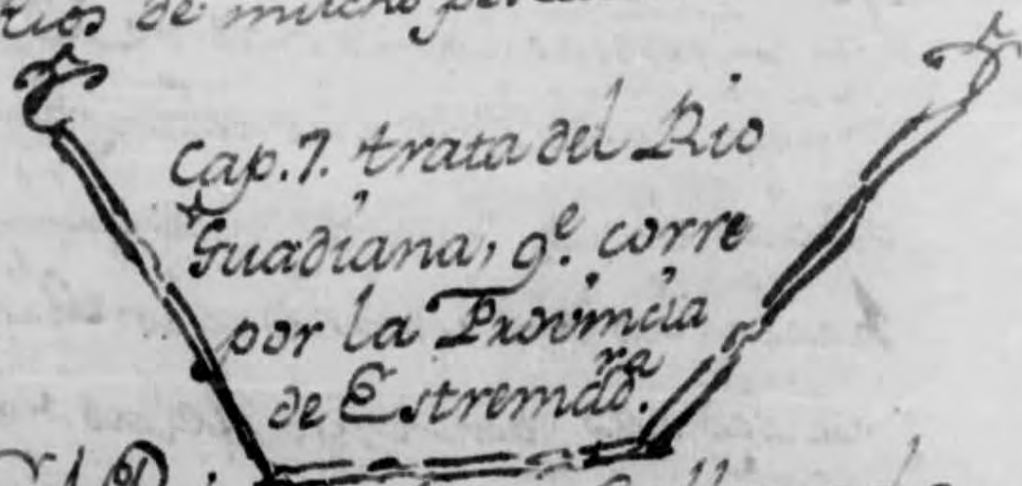 de mucho
Cap. 7. trata del Rio
Guadiana, q.e corre
por la Provincia
de Estremad.ra